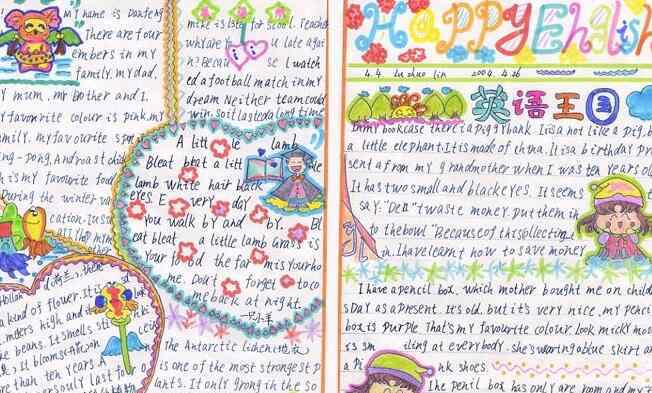 My name is Danfeng
There are four
embers in my
family. my dad,
y mum, my Brother and I.
y favourite colour is pink. my
family. my favourite
ing-pong, And roast chi
h is my favourite food
During the winter va
cation.
mike is late for school. Teacher
why are u late agai
n? Becau se I watch
ed a football match in my
dream Neither team could
win. so it lasted a long time
A litt le lamb
Bleat bleat a litt le
lamb White hair black
eyes E very day
you walk by and by. Bl
eat bleat a little lamb Grass is
your food the far m is your ho
me. Don't forget to co
me back at night.
一只小羊
a kind of flower. It is
meters high and
e beans. It smells
it bloom
ore than ten years. A
The Antarctic lichen 地衣
is one of the most strongest p
lants. It only grong in the so
Happy English
4.4 Lu shuo lin 2004. 4. 26
英语王国
In my bookcase there is a piggy bank. It is a not like a pig, b
a little elephant. It is made of china. It is a birthday pre
sent a from my grandmother when I was ten years ol
It has two small and black eyes. It seems
say. "Do't waste money put them in
to the bowl" Because of this collecting
in. I have learnt how to save money
I have a pencil box. which mother bought me on child
s Day as a present. It's old. but it's very nice. my Penci
box is purple That's my favourite colour. Look micky mou
is sm iling at every body. she's waring blue skirt an
a Pi nk shoes.
The penil box has only are room and